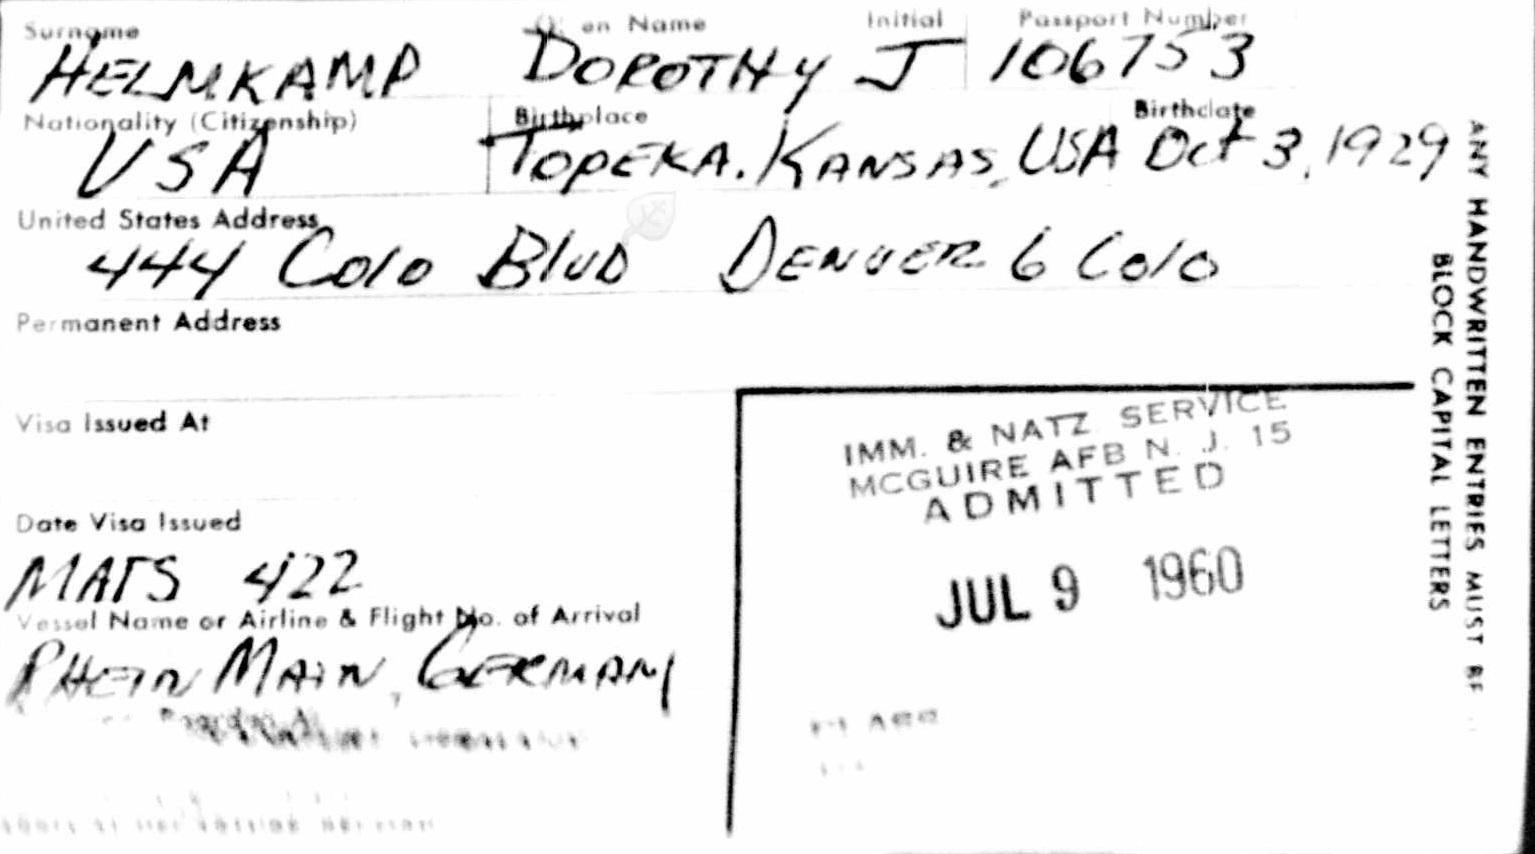 Surname Given Name Initial Passport Number
HELMKAMP DOROTHY J 106753
Nationality (Citizenship) Birthplace Birthdate
USA TOPEKA. KANSAS, USA Oct 3, 1929
United States Address
444 Colo Blvd DENVER 6 Colo
Permanent Address
Visa Issued At
IMM. & NATZ. SERVICE
MCGUIRE AFB N. J. 15
ADMITTED
JUL 9 1960
Date Visa Issued
MATS 422
Vessel Name or Airline & Flight No. of Arrival
RHEIN MAIN, GERMANY
ANY HANDWRITTEN ENTRIES MUST BE
BLOCK CAPITAL LETTERS